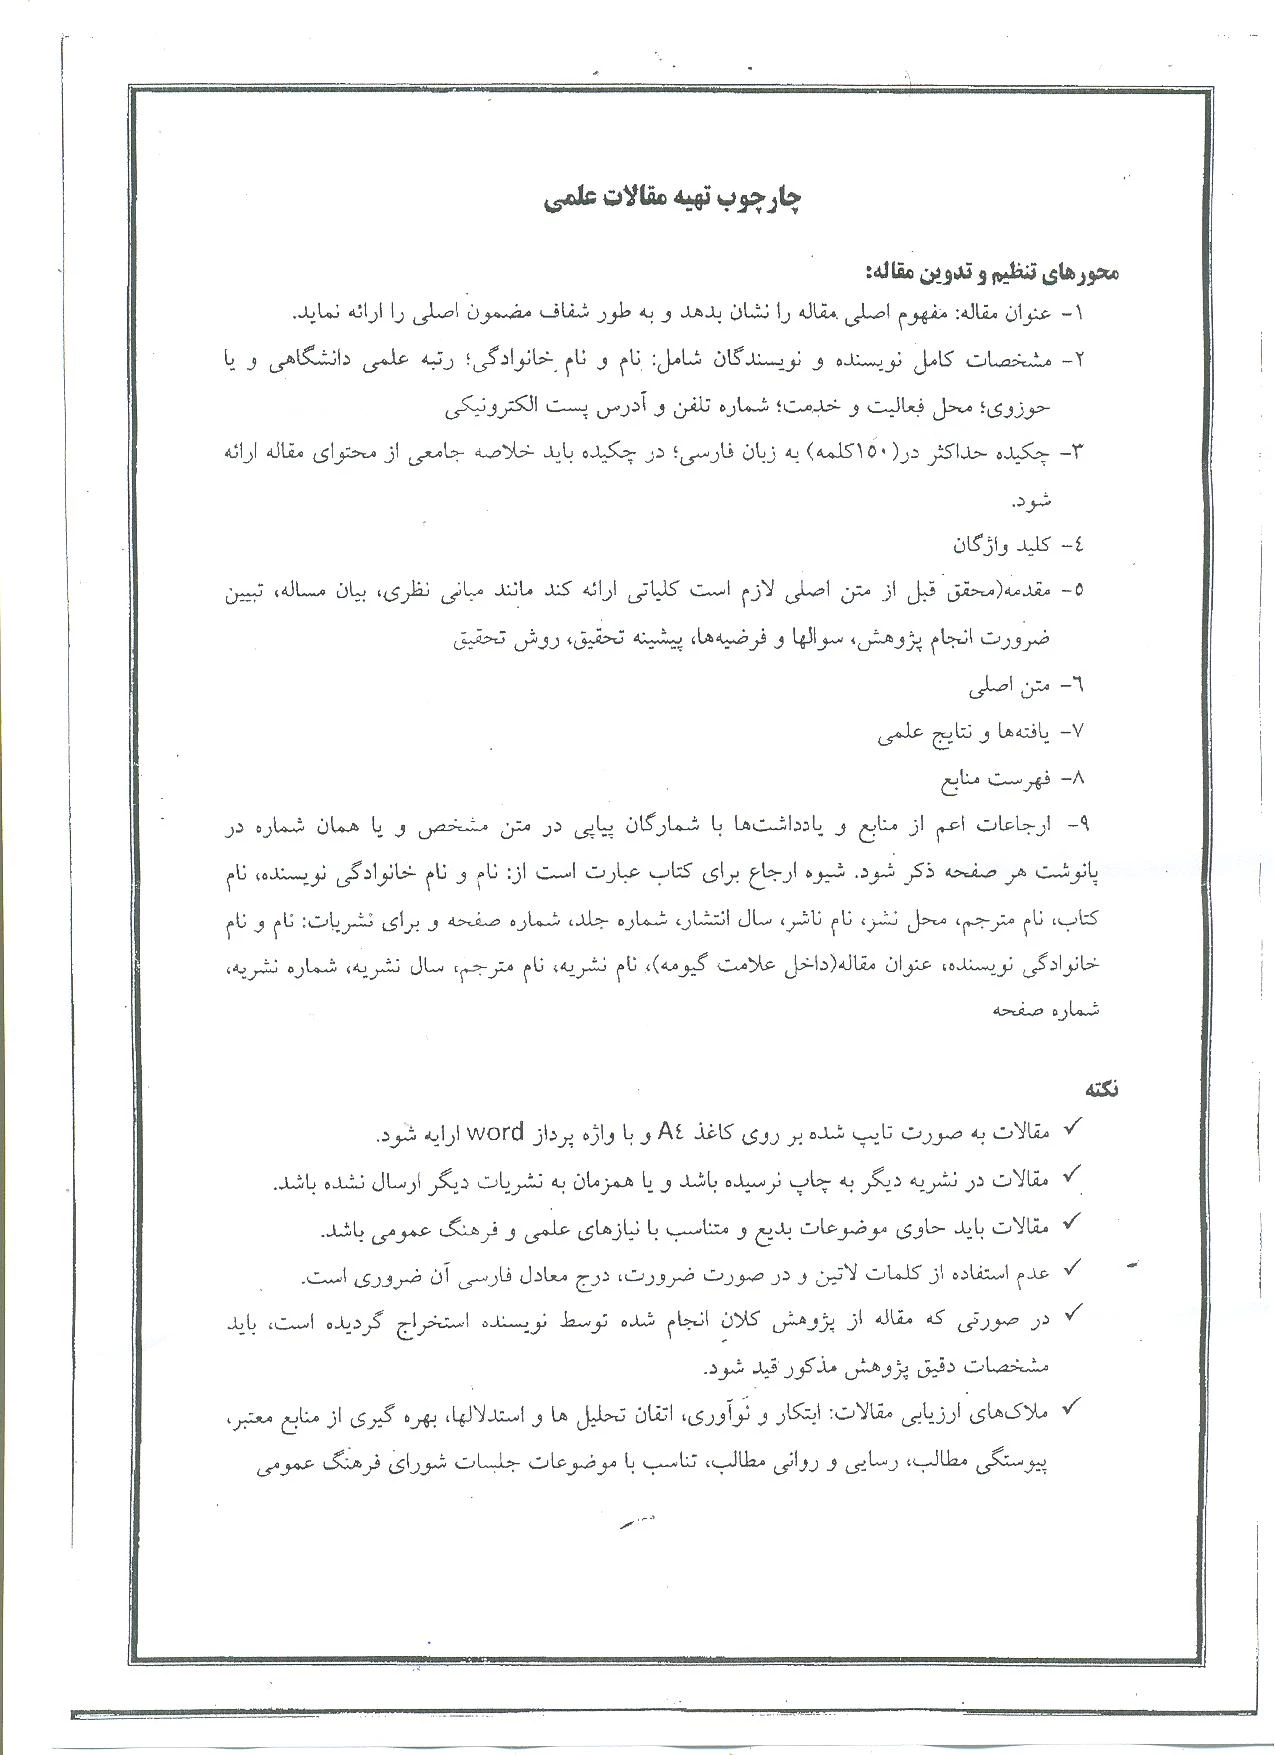 چارچوب تهیه مقالات علمی
محورهای تنظیم و تدوین مقاله:
۱- عنوان مقاله: مفهوم اصلی مقاله را نشان بدهد و به طور شفاف مضمون اصلی را ارائه نماید.
۲- مشخصات کامل نویسنده و نویسندگان شامل: نام و نام خانوادگی؛ رتبه علمی دانشگاهی و یا
حوزوی؛ محل فعالیت و خدمت؛ شماره تلفن و آدرس پست الکترونیکی
۳- چکیده حداکثر در(۱۵۰کلمه) به زبان فارسی؛ در چکیده باید خلاصه جامعی از محتوای مقاله ارائه
شود.
٤- کلید واژگان
۵- مقدمه(محقق قبل از متن اصلی لازم است کلیاتی ارائه کند مانند مبانی نظری، بیان مساله، تبیین
ضرورت انجام پژوهش، سوالها و فرضیه‌ها، پیشینه تحقیق، روش تحقیق
٦- متن اصلی
۷- یافته‌ها و نتایج علمی
۸- فهرست منابع
۹- ارجاعات اعم از منابع و یادداشت‌ها با شمارگان پیاپی در متن مشخص و یا همان شماره در
پانوشت هر صفحه ذکر شود. شیوه ارجاع برای کتاب عبارت است از: نام و نام خانوادگی نویسنده، نام
کتاب، نام مترجم، محل نشر، نام ناشر، سال انتشار، شماره جلد، شماره صفحه و برای نشریات: نام و نام
خانوادگی نویسنده، عنوان مقاله(داخل علامت گیومه)، نام نشریه، نام مترجم، سال نشریه، شماره نشریه،
شماره صفحه
نکته
✓ مقالات به صورت تایپ شده بر روی کاغذ A٤ و با واژه پرداز word ارایه شود.
✓ مقالات در نشریه دیگر به چاپ نرسیده باشد و یا همزمان به نشریات دیگر ارسال نشده باشد.
✓ مقالات باید حاوی موضوعات بدیع و متناسب با نیازهای علمی و فرهنگ عمومی باشد.
✓ عدم استفاده از کلمات لاتین و در صورت ضرورت، درج معادل فارسی آن ضروری است.
✓ در صورتی که مقاله از پژوهش کلان انجام شده توسط نویسنده استخراج گردیده است، باید
مشخصات دقیق پژوهش مذکور قید شود.
✓ ملاک‌های ارزیابی مقالات: ابتکار و نوآوری، اتقان تحلیل ها و استدلالها، بهره گیری از منابع معتبر،
پیوستگی مطالب، رسایی و روانی مطالب، تناسب با موضوعات جلسات شورای فرهنگ عمومی